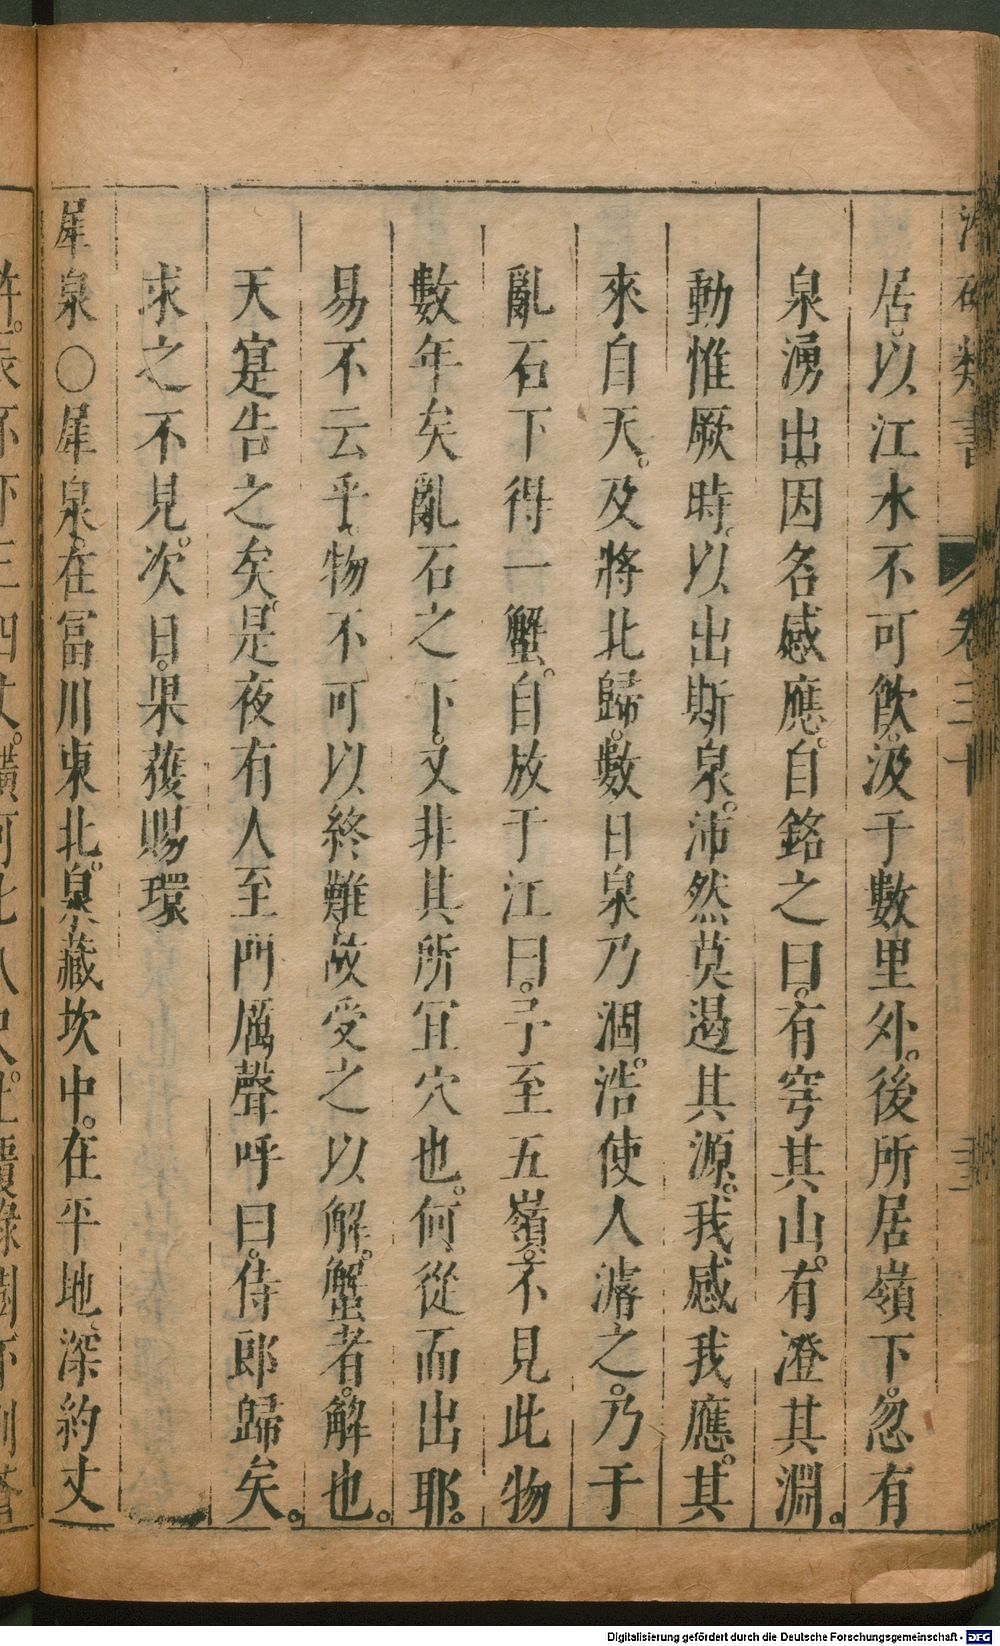 居。以江水不可飲。汲于數里外。後所居嶺下。忽有
泉湧出。因名感應。自銘之曰。有穹其山。有澄其淵。
動惟厥時。以出斯泉。沛然莫遏其源。我感我應。其
來自天。及將北歸。數日泉乃涸。浩使人濬之。乃于
亂石下得一蟹。自放于江曰。予至五嶺。不見此物
數年矣亂石之下。又非其所宜穴也。何從而出耶。
易不云乎。物不可以終難。故受之以解。蟹者。解也。
天寔告之矣。是夜有人至門厲聲呼曰。侍郎歸矣。
求之不見。次日。果獲賜環
犀泉○犀泉。在冨川東北。泉藏坎中。在平地深約丈
類書
卷三十
Digitalisierung gefördert durch die Deutsche Forschungsgemeinschaft - DFG